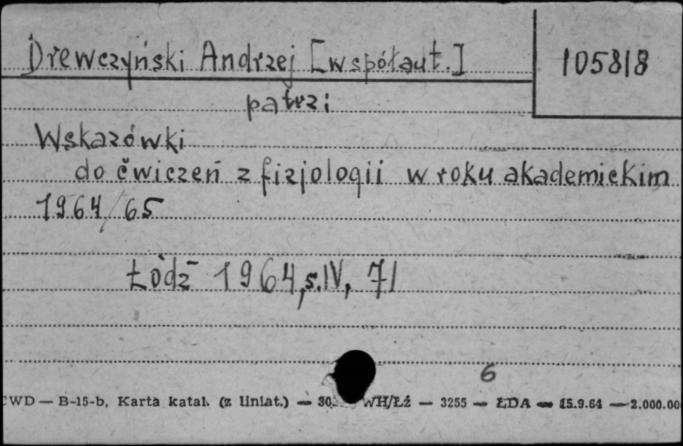 Drewczyński Andrzej [współaut.] 105818
patrz:
Wskazówki
do ćwiczeń z fizjologii w roku akademickim
1964/65
Łódź 1964, s. IV, 71
6
CWD — B-15-b, Karta katal. (z liniat.) — WH/Łź — 3255 — ŁDA — 15.9.64 — 2.000.00